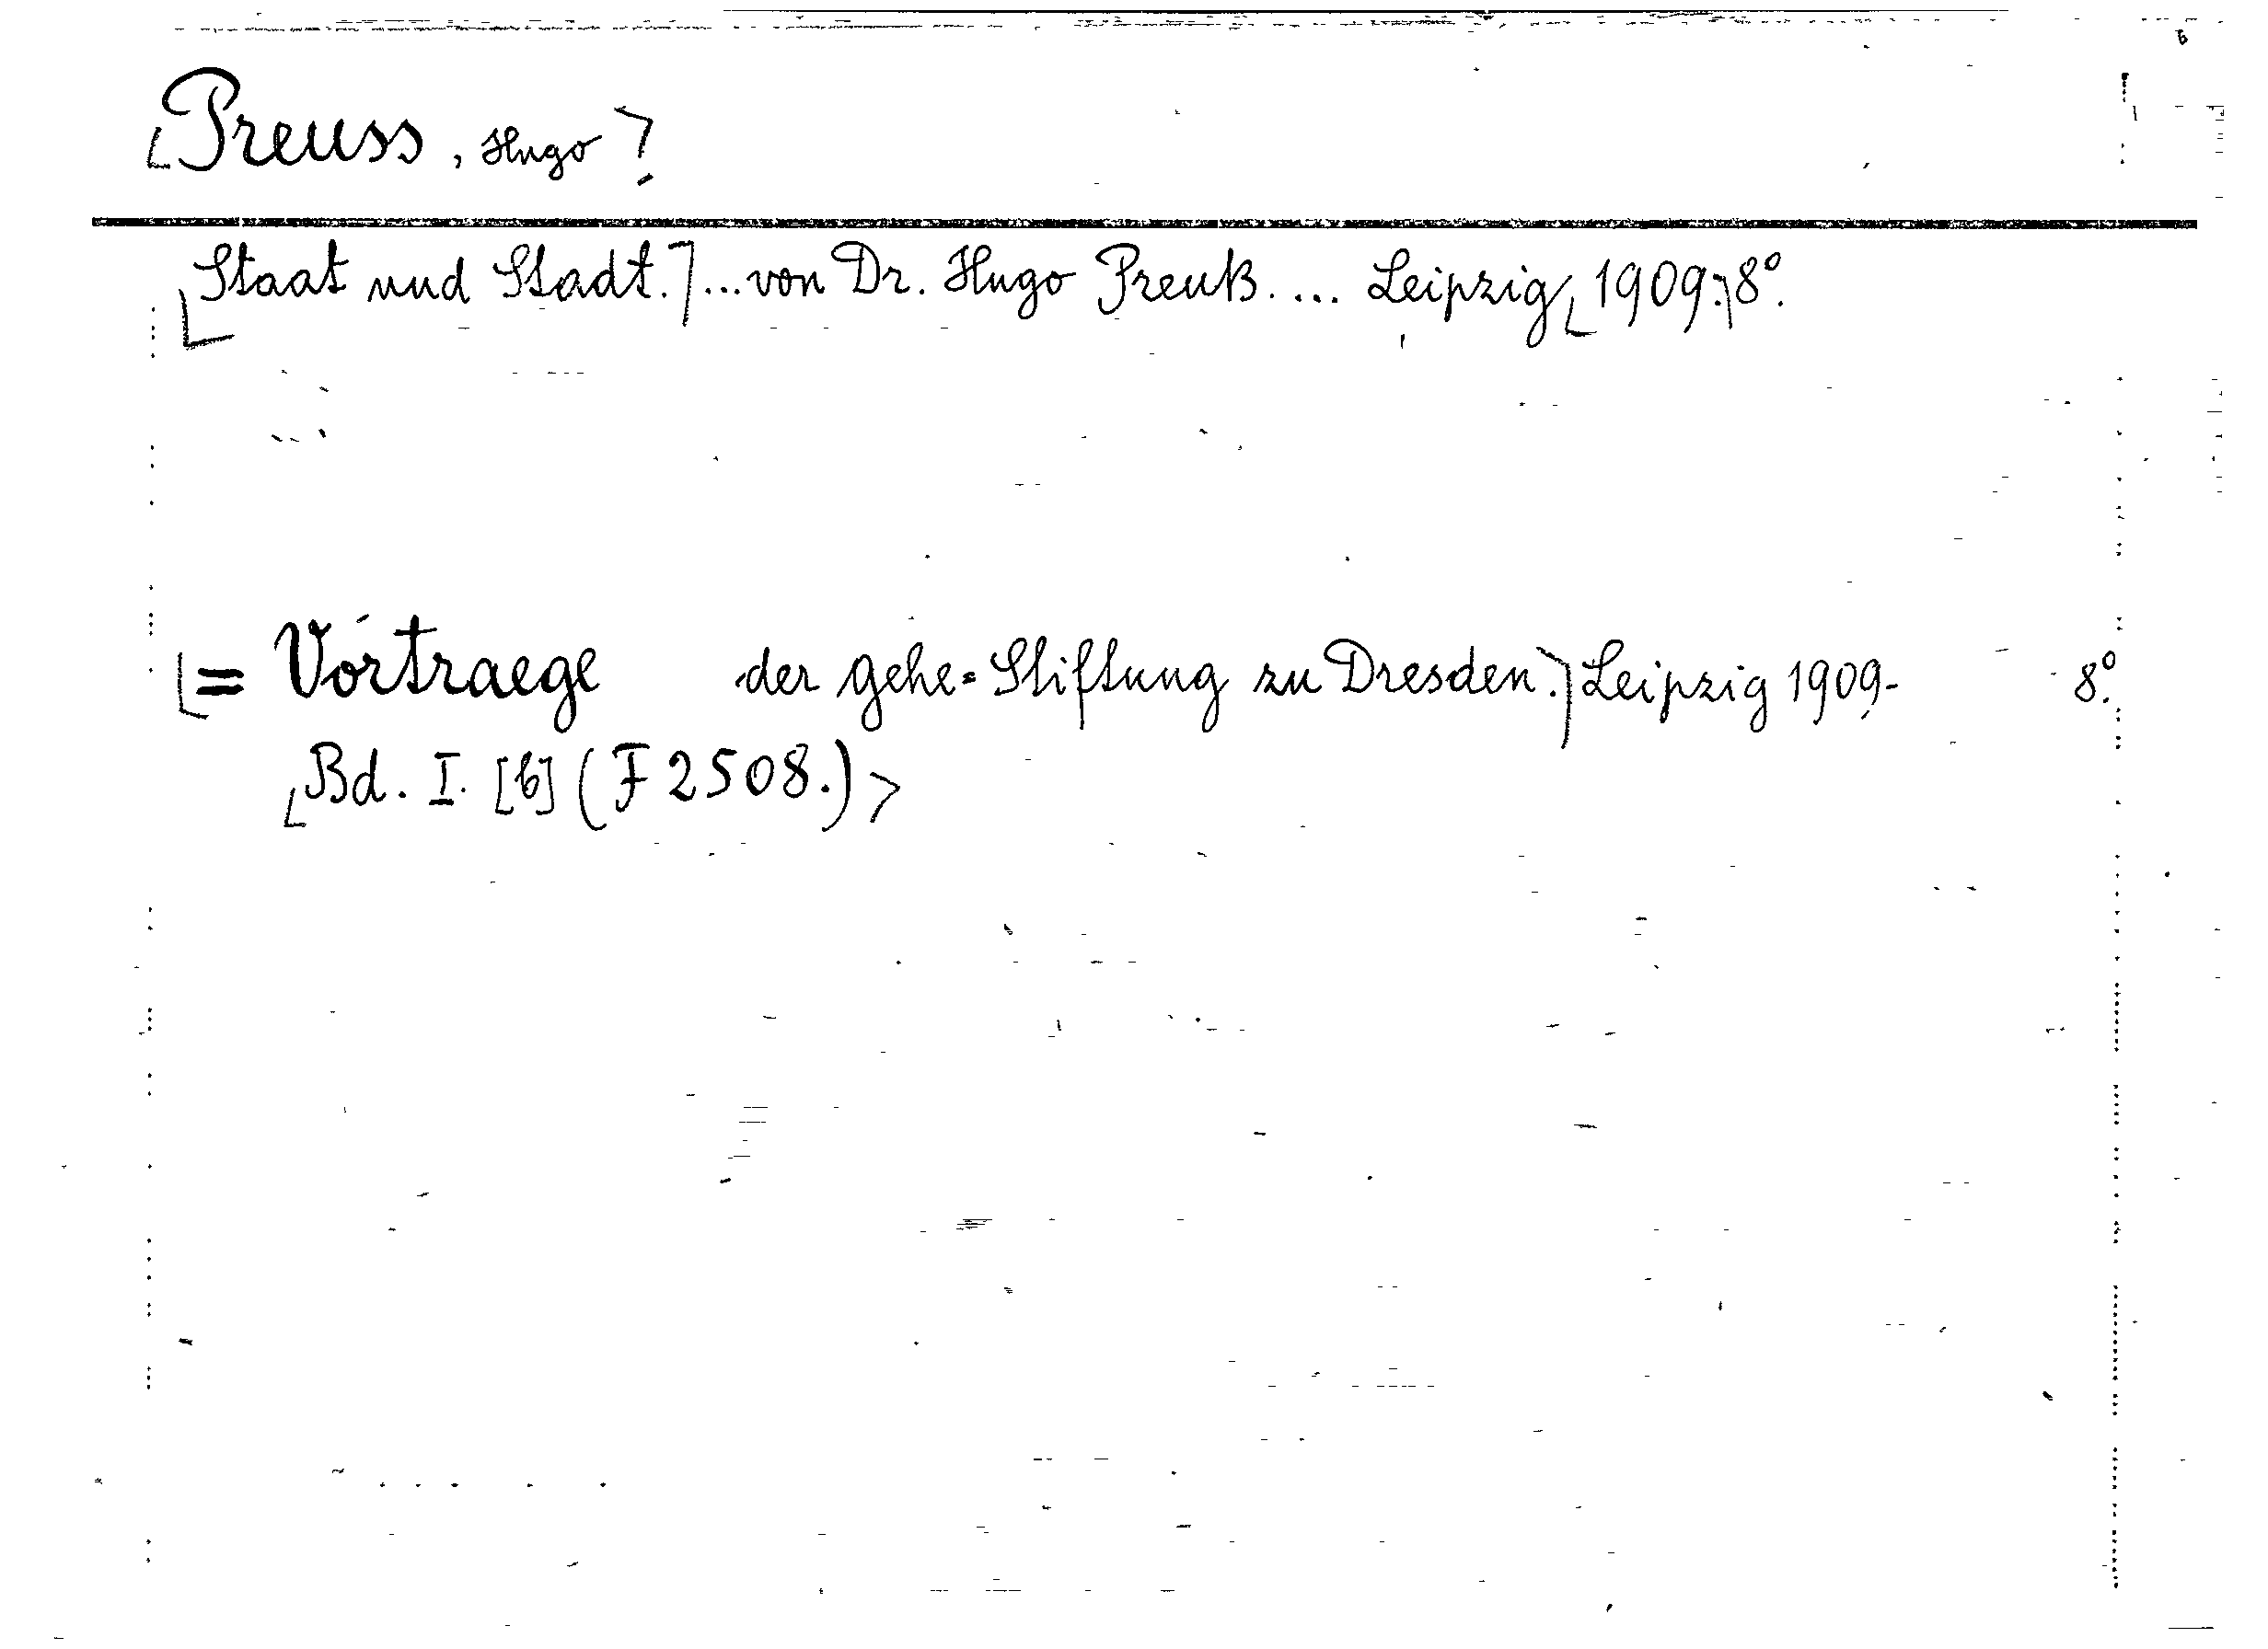 Preuss, Hugo
Staat und Stadt. ... von Dr. Hugo Preuß. ... Leipzig 1909. 8°.
= Vortraege der Gehe-Stiftung zu Dresden. Leipzig 1909- 8°.
Bd. I. [6] (F 2508.)